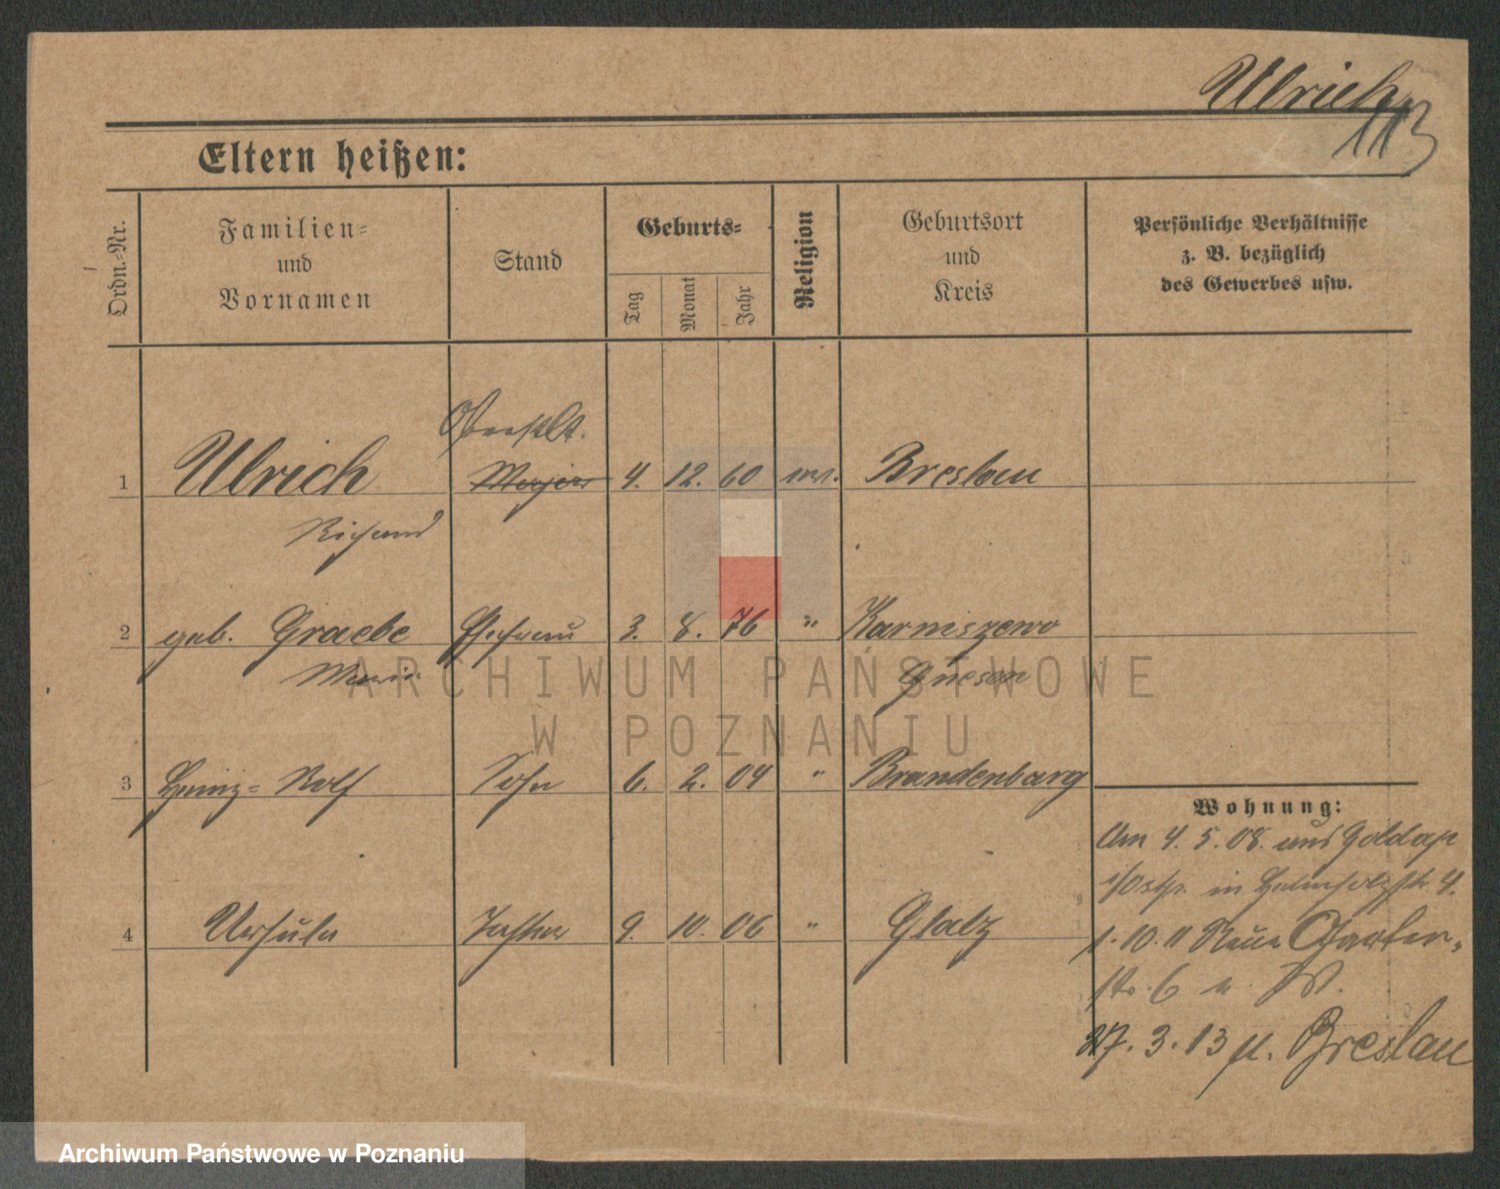 Ulrich
113
Eltern heißen:
Ordn.-Nr.
Familien-
und
Vornamen
Stand
Geburts-
Tag
Monat
Jahr
Religion
Geburtsort
und
Kreis
Persönliche Verhältnisse
z. B. bezüglich
des Gewerbes usw.
Oberstlt.
1 Ulrich Major 4. 12. 60 Breslau
Richard
2 geb. Graebe Ehefrau 3. 8. 76 " Karniszewo
Marie Gnesen
ARCHIWUM PAŃSTWOWE
W POZNANIU
3 Heinz-Rolf Sohn 6. 2. 04 " Brandenburg
Wohnung:
Am 4. 5. 08. aus Goldap
i/Ostpr. in Helmholtzstr. 4.
4 Ursula Tochter 9. 10. 06 " Glatz
1. 10. 11 Neue Garten-
str. 6
27. 3. 13 n. Breslau
Archiwum Państwowe w Poznaniu